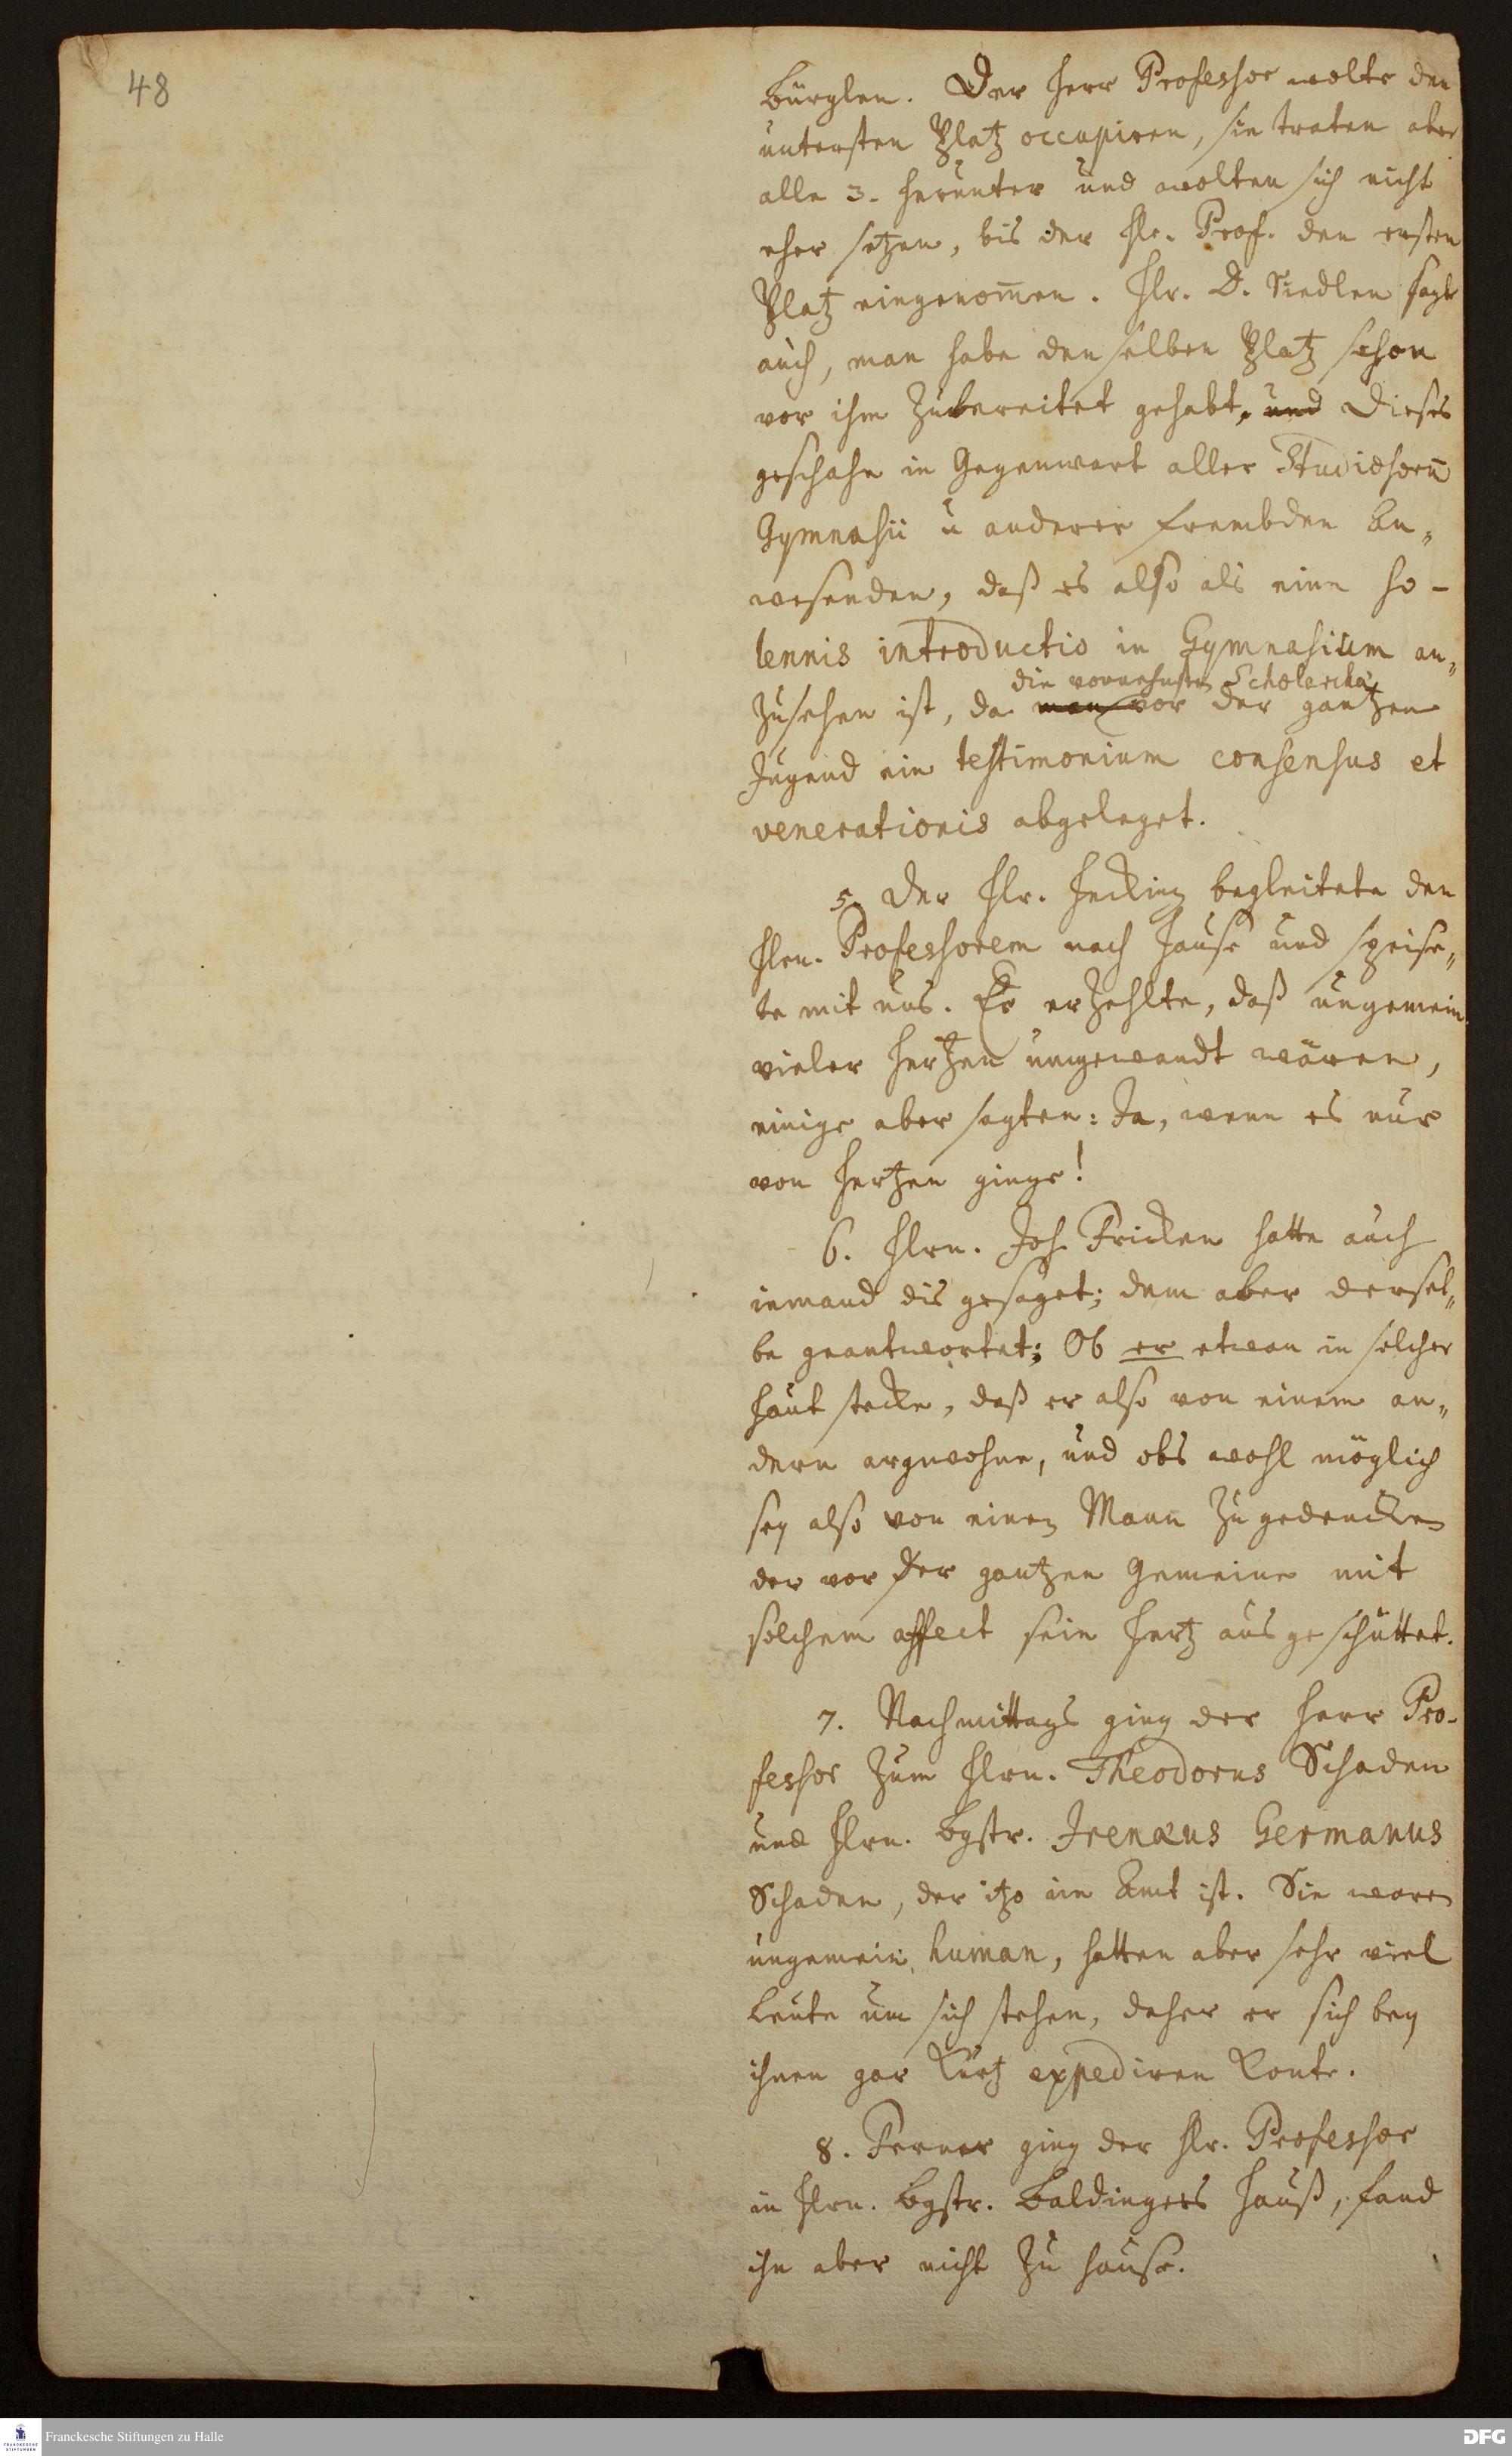 48
Bürglen. Der Herr Professor wolte den
untersten Platz occupiren, sie traten aber
alle 3. herunter und wolten sich nicht
eher setzen, bis der Hr. Prof. den ersten
Platz eingenom̄en. Hr. D. Siedlen sagte
auch, man habe denselben Platz schon
vor ihm zubereitet gehabt, und dieses
geschahe in Gegenwart aller Studiosorū
Gymnasii u anderer frembden An„
wesenden, daß es also als eine so-
lennis introductio in Gymnasium an„
die vornehmsten Scholarchæ
zusehen ist, da man vor der gantzen
Jugend ein testimonium consensus et
venerationis abgeleget.
5. Der Hr. Hecking begleitete den
Hrn. Professorem nach Hause und speise„
te mit uns. Er erzehlte, daß ungemein
vieler Hertzen umgewandt wären,
einige aber sagten: Ja, wenn es nur
von Hertzen ginge!
6. Hrn. Joh. Fricken hatte auch
iemand dis gesaget; dem aber dersel„
be geantwortet; Ob er etwan in solcher
Haut stecke, daß er also von einem an„
dern argwohne, und obs wohl möglich
sey also von einen Mann zu gedencken
der vor der gantzen Gemeine mit
solchem affect sein Hertz ausgeschüttet.
7. Nachmittags ging der Herr Pro-
fessor zum Hrn. Theodorus Schaden
und Hrn. Bgstr. Irenæus Germanus
Schaden, der itzo im Amt ist. Sie waren
ungemein human, hatten aber sehr viel
Leute um sich stehen, daher er sich bey
ihnen gar kurtz expediren konte.
8. Ferner ging der Hr. Professor
in Hrn. Bgstr. Baldingers Hauß, fand
ihn aber nicht zu Hause.
Franckesche Stiftungen zu Halle
DFG